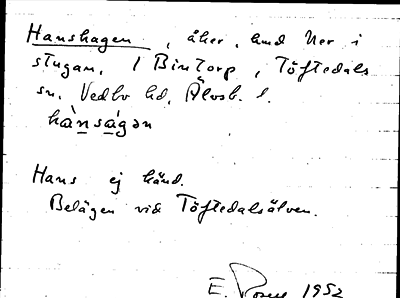 Hanshagen, åker, hmd Ner i
stugan, 1 Bintorp, Töftedals
sn, Vedbo hd, Älvsb. l.
hànságən
Hans ej känd.
Belägen vid Töftedalsälven.
E. 1952